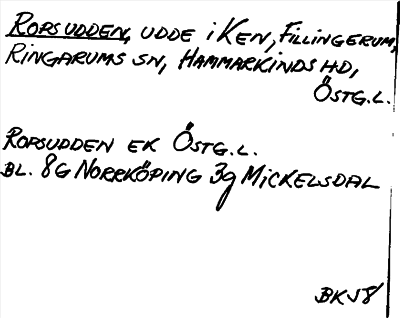 Ropsudden, udde i Ken, Fillingerum,
Ringarums sn, Hammarkinds hd,
Östg.l.
Ropsudden EK Östg.l.
Bl. 8G Norrköping 3g Mickelsdal
BKJ8